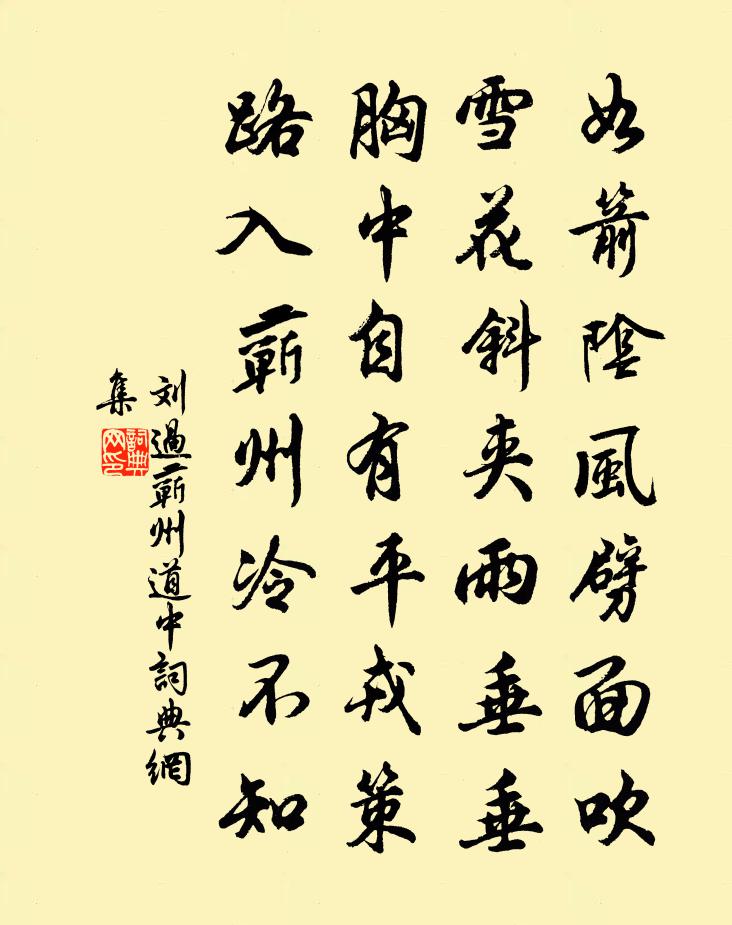 如箭陰風劈面吹
雪花斜夾雨垂垂
胸中自有平戎策
路入蕲州冷不知
刘過蕲州道中詞典網
集
詞典
网印